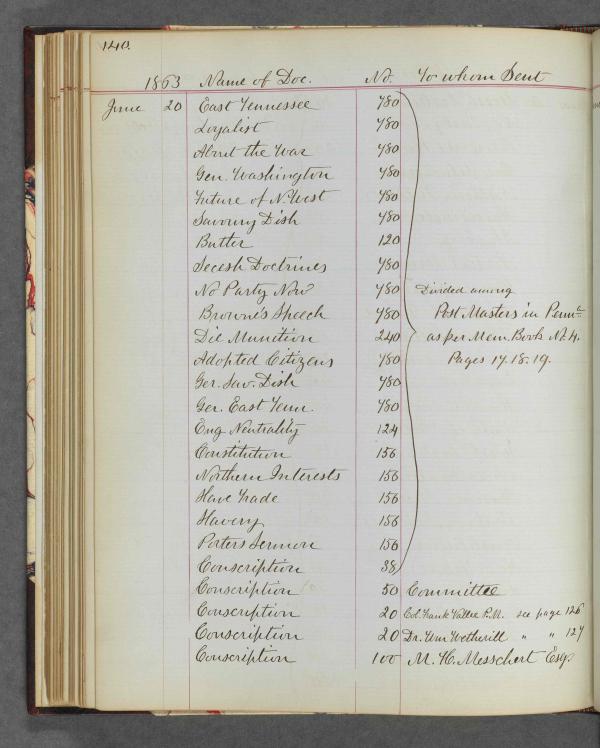 140.
1863 Name of Doc. No. To whom Sent
June 20 East Tennessee 780
Loyalist 780
About the War 780
Gen. Washington 780
Future of N. West 780
Savoury Dish 780
Butler 120
Secesh Doctrines 780
No Party Now 780 Divided among
Browne's Speech 780 Post Masters in Penna
Die Munition 240 as per Mem. Book No 4.
Adopted Citizens 780 Pages 17.18.19.
Ger. Sav. Dish 780
Ger. East Tenn. 780
Eng Neutrality 124
Constitution 156
Northern Interests 156
Slave Trade 156
Slavery 156
Porters Sermon 156
Conscription 38
Conscription 50 Committee
Conscription 20 Col. Frank Vallee P.M. see page 126
Conscription 20 Dr. Wm Wetherill " " 127
Conscription 100 M. H. Messchert Esq.